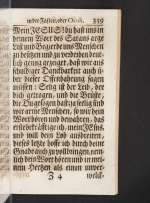 in der Fasten, oder Ocul. 359
Mein JESU! du hast uns in
deinem Wort des Satans arge
List und Begierde uns Menschen
zu besitzen und zu verderben deut-
lich genug gezeiget, daß wir aus
schuldiger Danckbarkeit auch ü-
ber dieser Offenbahrung sagen
müssen: Selig ist der Leib, der
dich getragen, und die Brüste,
die Du gesogen hast; ja selig sind
wir arme Menschen, so wir dein
Wort hören und bewahren, das
erstehe kräfftig, ich, mein JEsus,
und will dein Wort
dieses letzte so ich durch deine
Gnade auch zu vollbringen, nem-
lich dein Wort hören und in mei-
nem Hertzen als einen unver-
Z 4 welck-